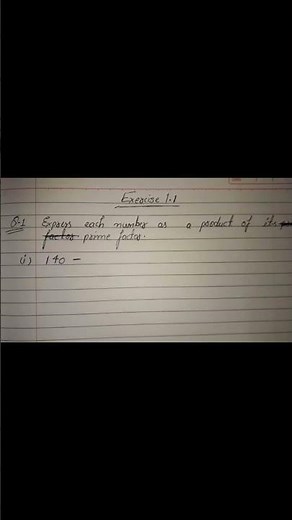 Exercise 1.1
Q-1 Express each number as a product of its
factor prime factor.
(i) 140 -